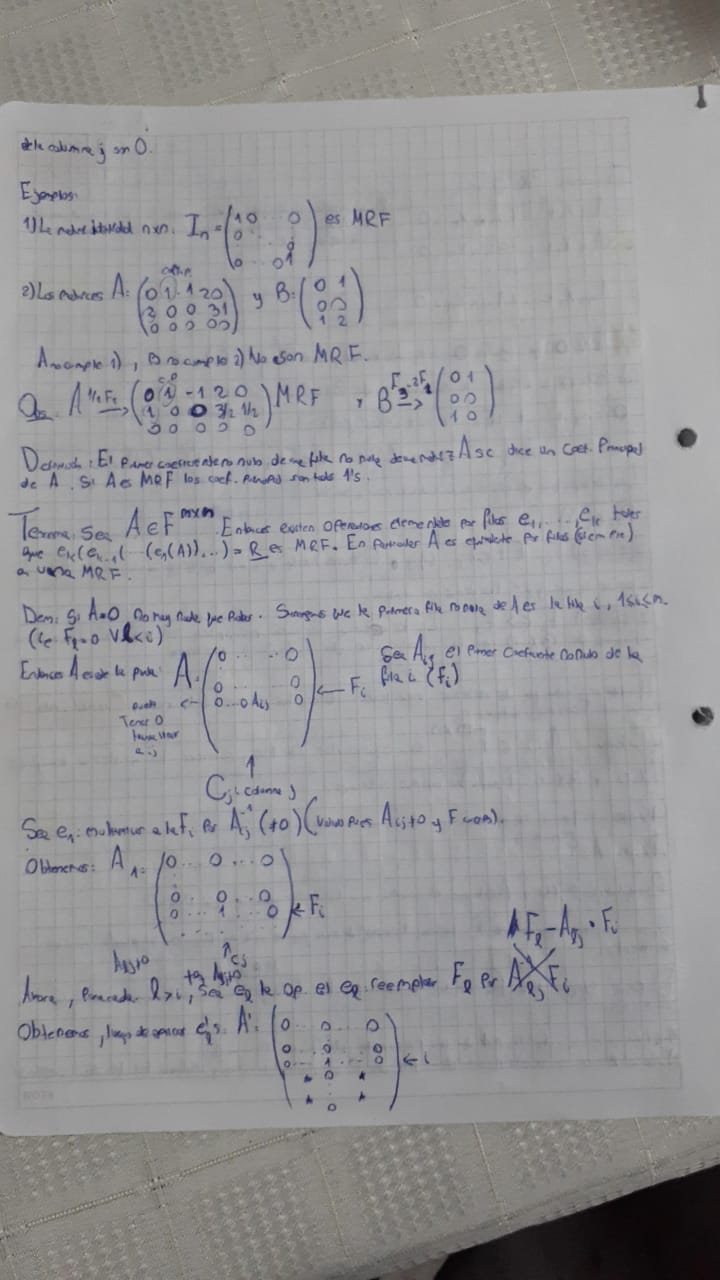 de la columna j son 0.
Ejemplos:
1) La matriz identidad nxn. In = (1 0 0 0 0 0 1) es MRF
2) Las matrices A: (0 1 -1 2 0 2 0 0 3 1 0 0 0 0 0) y B: (0 1 0 0 1 2)
A no cumple 1), B no cumple 2) No son MRF.
A 1/2 F2 → (0 1 -1 2 0 1 0 0 3/2 1/2 0 0 0 0 0) MRF, B F3-2F1 → (0 1 0 0 1 0)
Definición: El primer coeficiente no nulo de una fila no nula de una matriz A se dice un Coef. Principal
de A. Si A es MRF los coef. principal son todos 1's.
Teorema: Sea A∈F^mxn. Entonces existen operaciones elementales por filas e1,...,ek tales
que ek(ek-1(...(e1(A))...) = R es MRF. En particular A es equivalente por filas (siempre)
a una MRF.
Dem: Si A=0 no hay nada que probar. Supongamos que la primera fila no nula de A es la fila i, 1≤i≤m.
(i.e. Fl=0 ∀l<i)
Entonces A es de la forma A: (0 ... 0 0 0 0...0 Aij 0) ← Fi
Sea Aij el primer coeficiente no nulo de la
fila i (Fi)
Tener 0
Cj: columna j
Sea e1: multiplicar a la Fi por Aij^-1 (≠0) (pues Aij≠0 y F cuerpo).
Obtenemos: A1 = (0 ... 0 ... 0 0 0 0 0 ... 1 ... 0) ← Fi
↑ Cj
Alj≠0
1Fl - Alj · Fi
Ahora, para cada l>i, tq Alj≠0 sea el la op. el el: reemplazar Fl por Alj Fi
Obtenemos, luego de aplicar el's. A': (0 0 0 0 0 0 0 ... 1 0 * 0 * * 0 *) ← i